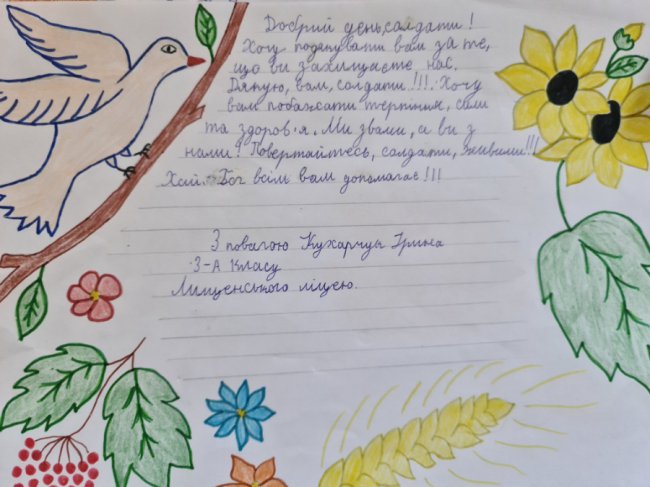 Добрий день, солдати!
Хочу подякувати вам за те,
що ви захищаєте нас.
Дякую, вам, солдати!!! Хочу
вам побажати терпіння, сили
та здоров'я. Ми з вами, а ви з
нами! Повертайтесь, солдати, живими!!!
Хай Бог всім вам допомагає!!!
З повагою Ірина
3-А класу
Лищенського ліцею.